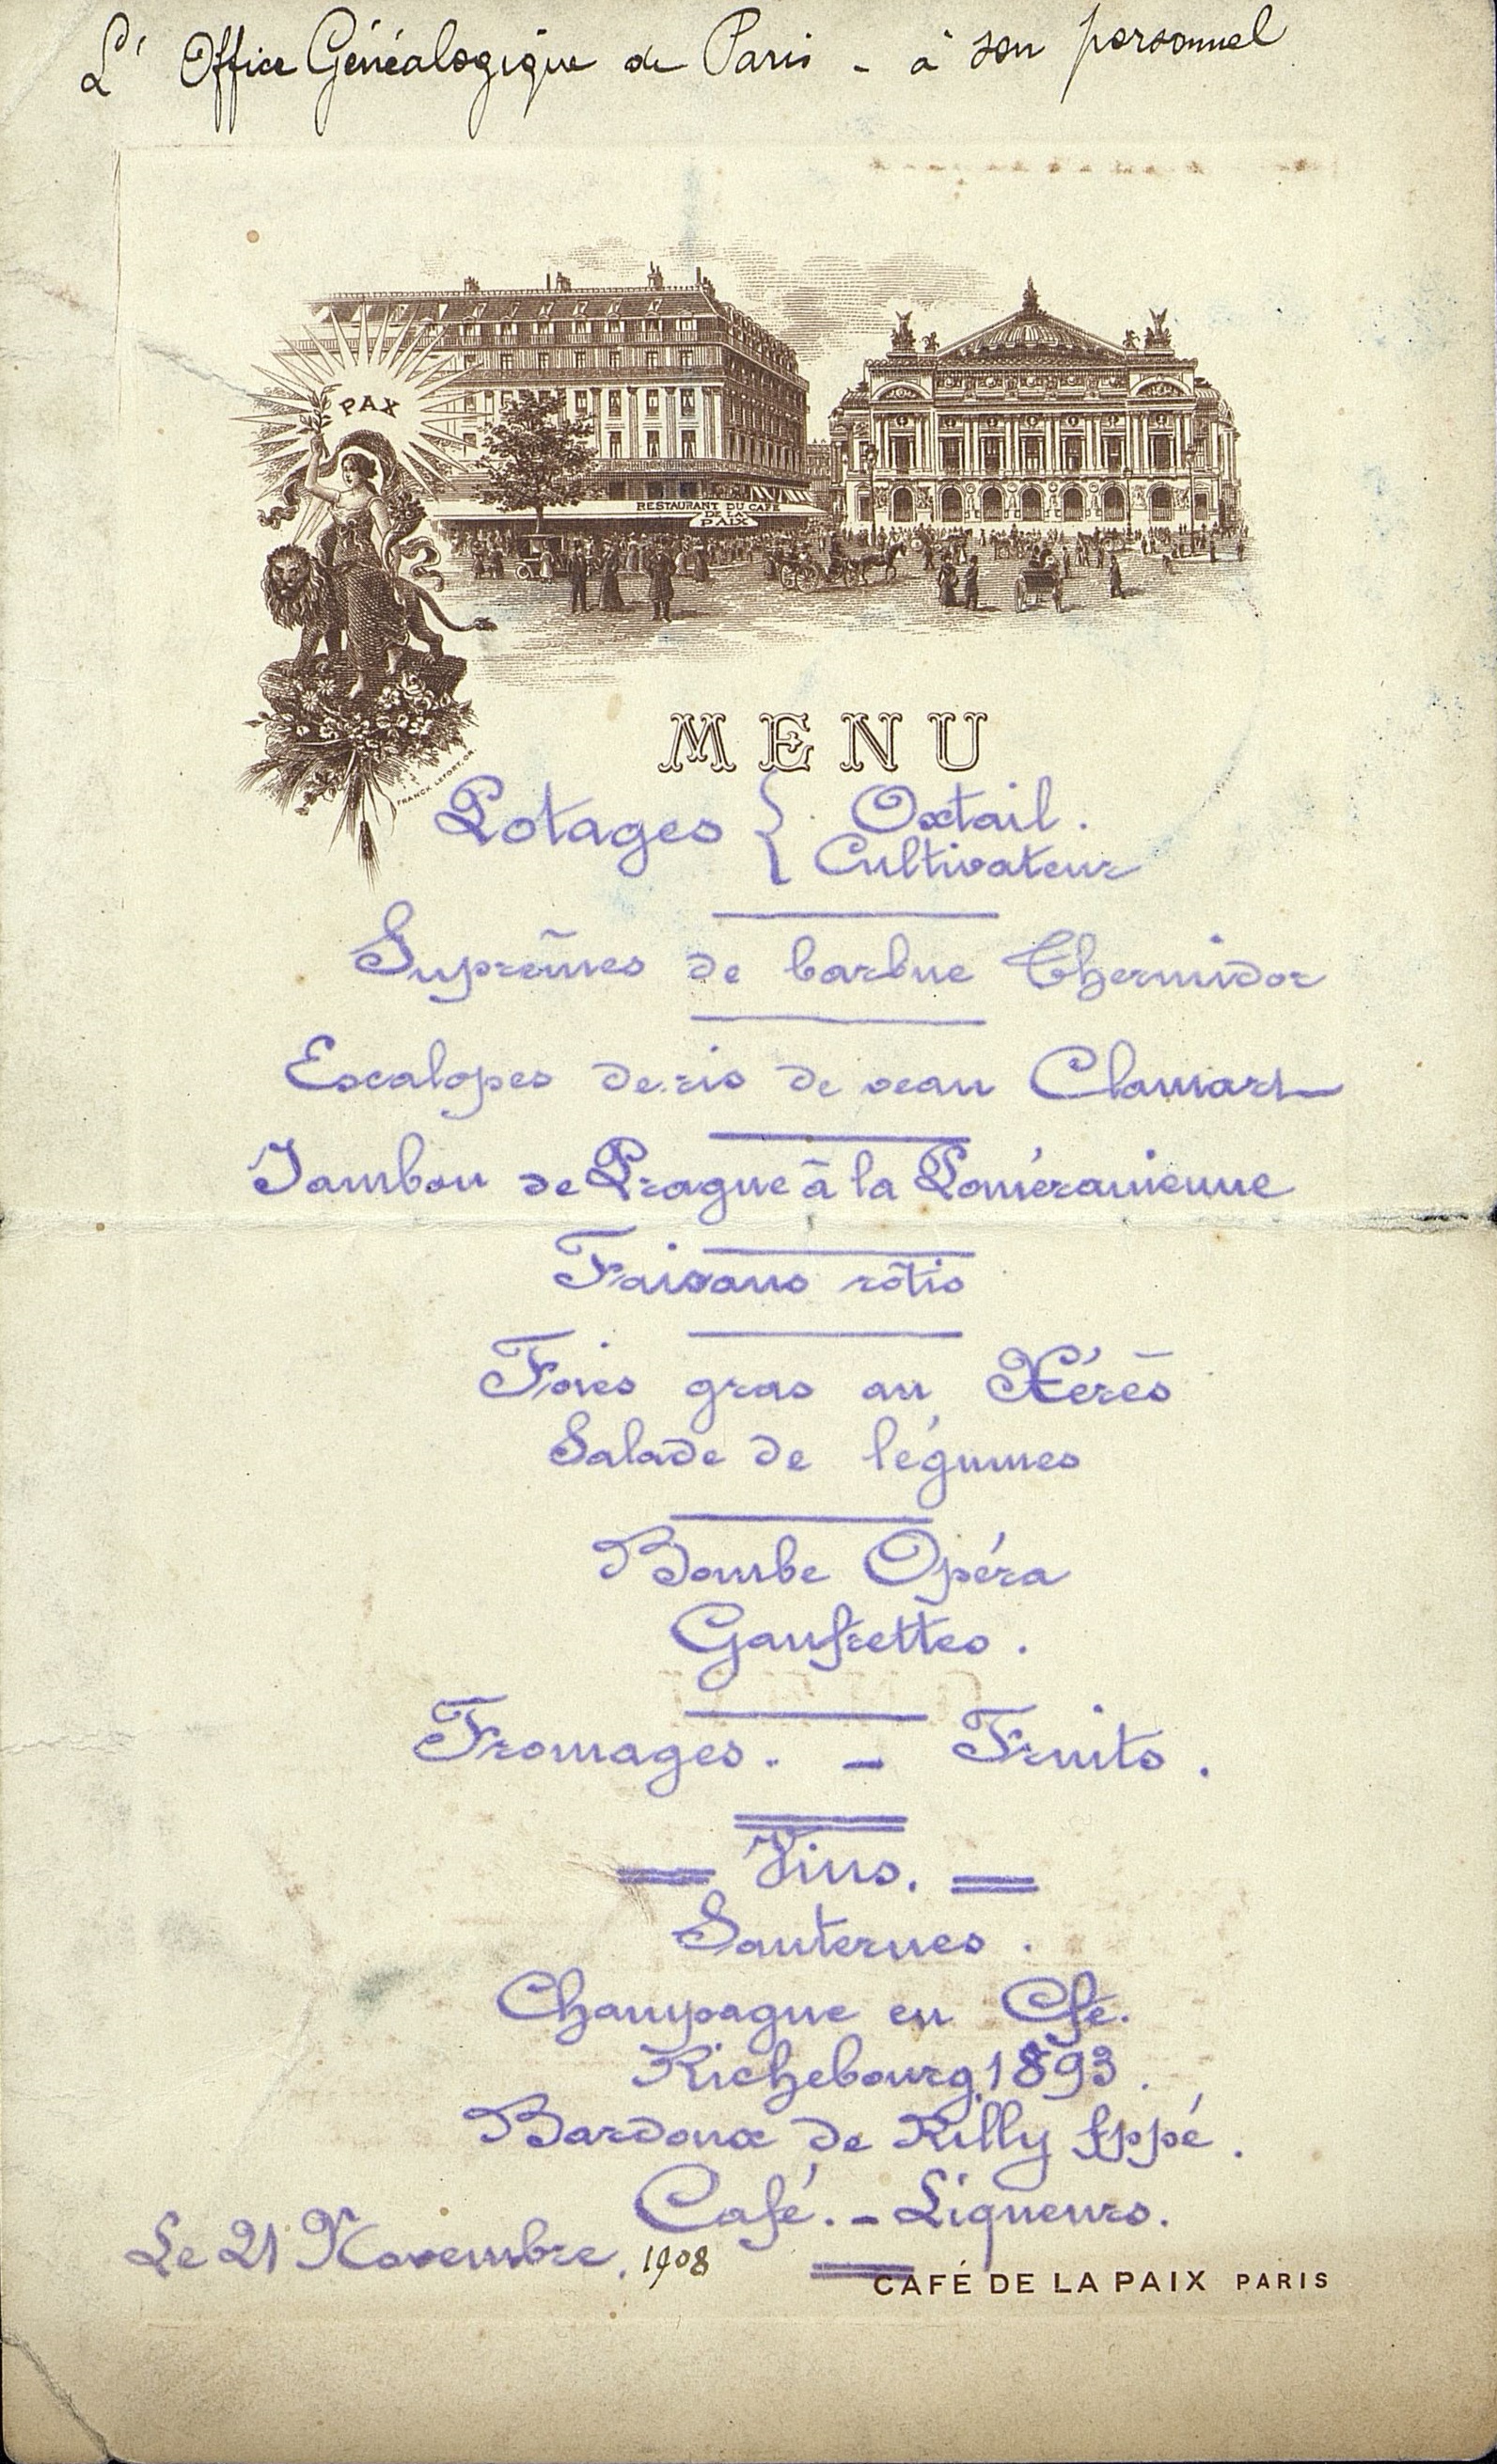 L' Office Généalogique de Paris - à son personnel
PAX
RESTAURANT DU CAFÉ
DE LA
PAIX
FRANCK LEFORT, GR.
MENU
Potages { Oxtail.
Cultivateur
Suprêmes de barbue Thermidor
Escalopes de ris de veau Clamart
Jambon de Prague à la Poméranienne
Faisans rôtis
Foies gras au Xérès
Salade de légumes
Bombe Opéra
Gaufrettes.
Fromages. - Fruits.
= Vins. =
Sauternes.
Champagne en Cfe.
Richebourg 1893.
Bardoux de Rilly fppé.
Café. - Liqueurs.
Le 21 Novembre. 1908
CAFÉ DE LA PAIX PARIS